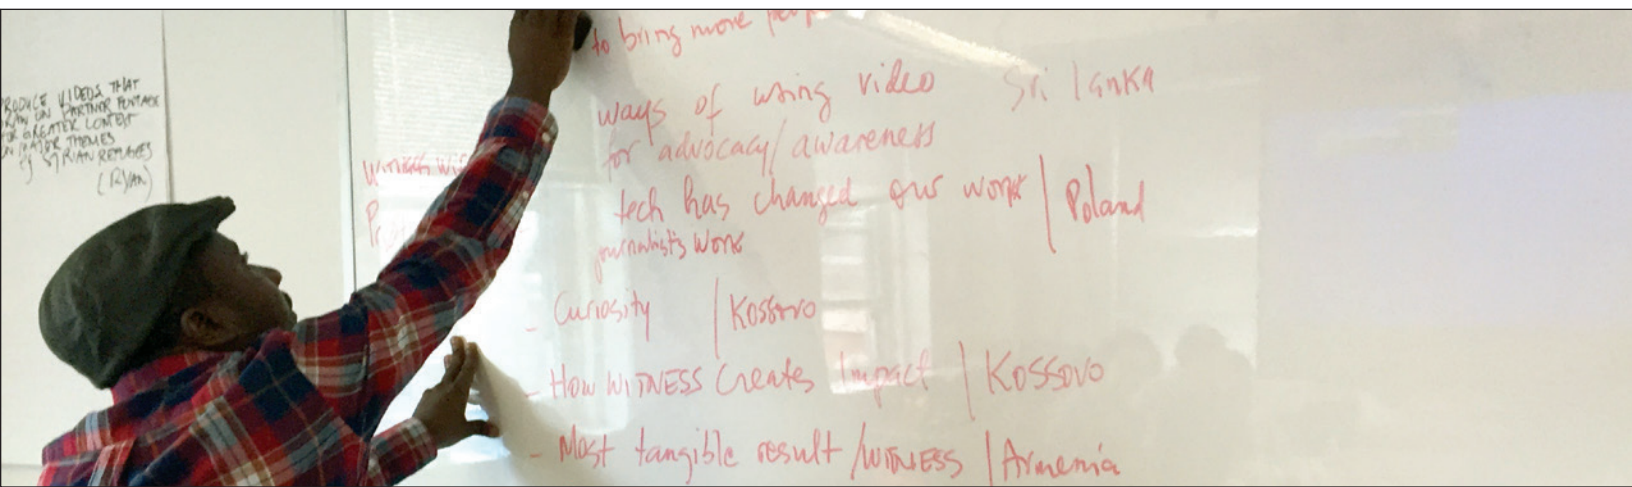 PRODUCE VIDEOS THAT
DRAW ON PARTNER FOOTAGE
FOR GREATER CONTEXT
ON MAJOR THEMES
SYRIAN REFUGEES
(RYAN)
to bring more
ways of using video Sri lanka
for advocacy/awareness
tech has changed our work | Poland
journalists work
- Curiosity | Kossovo
- HOW WITNESS Creates Impact | KOSSOVO
- Most tangible result /WITNESS | Armenia